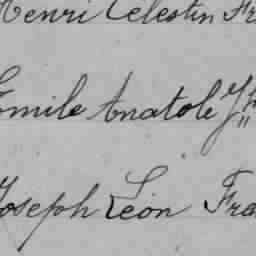 Henri Celestin Fr
Emile Anatole
Joseph Léon Fra